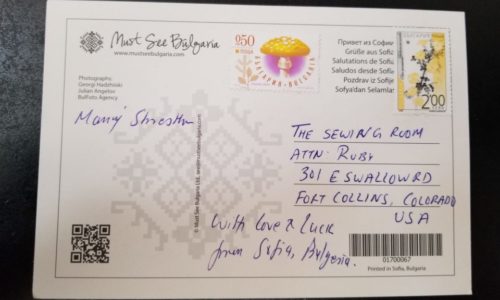 Must See Bulgaria
www.mustseebulgaria.com
Photography:
Georgi Hadzhiski
Julian Angelov
BulFoto Agency
250
ПОЩА
БЪЛГАРИЯ·BULGARIA
Привет из Софии
Grüße aus Sofia
Salutations de Sofia
Saludos desde Sofia
Pozdrav iz Sofije
Sofya'dan Selamlar
БЪЛГАРИЯ
2.00
THE SEWING ROOM
ATTN: RUBY
301 E SWALLOW RD
FORT COLLINS, COLORADO
USA
With Love & Luck
from Sofia, Bulgaria.
© Must See Bulgaria Ltd.
01700067
Printed in Sofia, Bulgaria